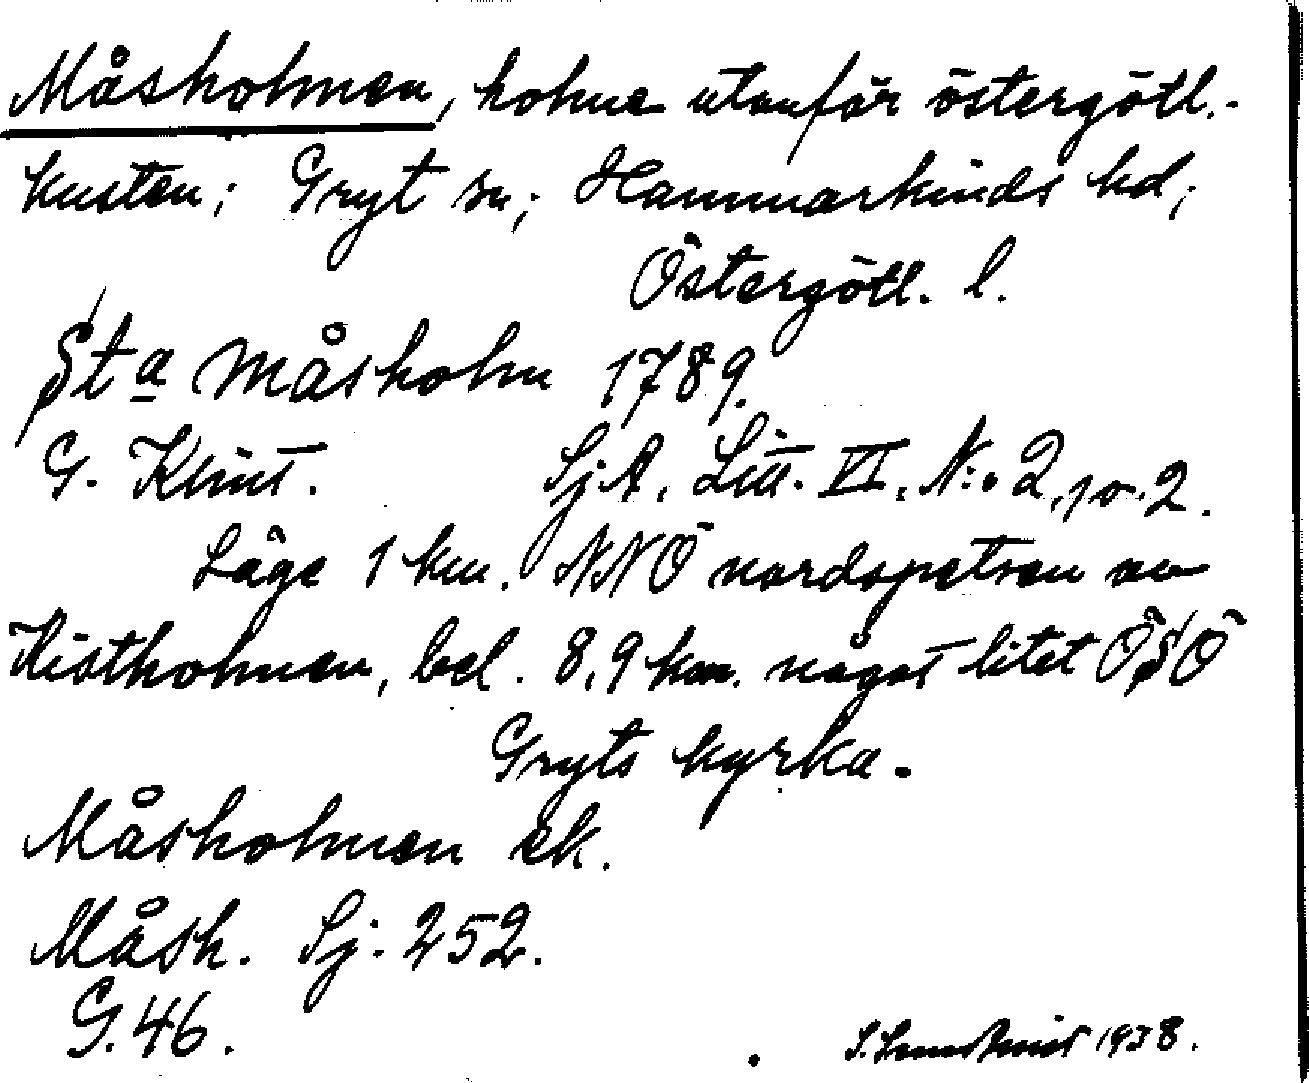 Måsholmen, holme utanför östergötl.-
kusten; Gryt sn; Hammarkinds hd;
Östergötl. l.
Sta Måsholm 1789.
G. Klint. SjA. Litt. VI. N:o 2, 10.2.
Läge 1 km. NNÖ nordspetsen av
Kistholmen, bel. 8,9 km. något litet ÖSÖ
Gryts kyrka.
Måsholmen ek.
Måsh. Sj. 252.
G. 46.
1938.